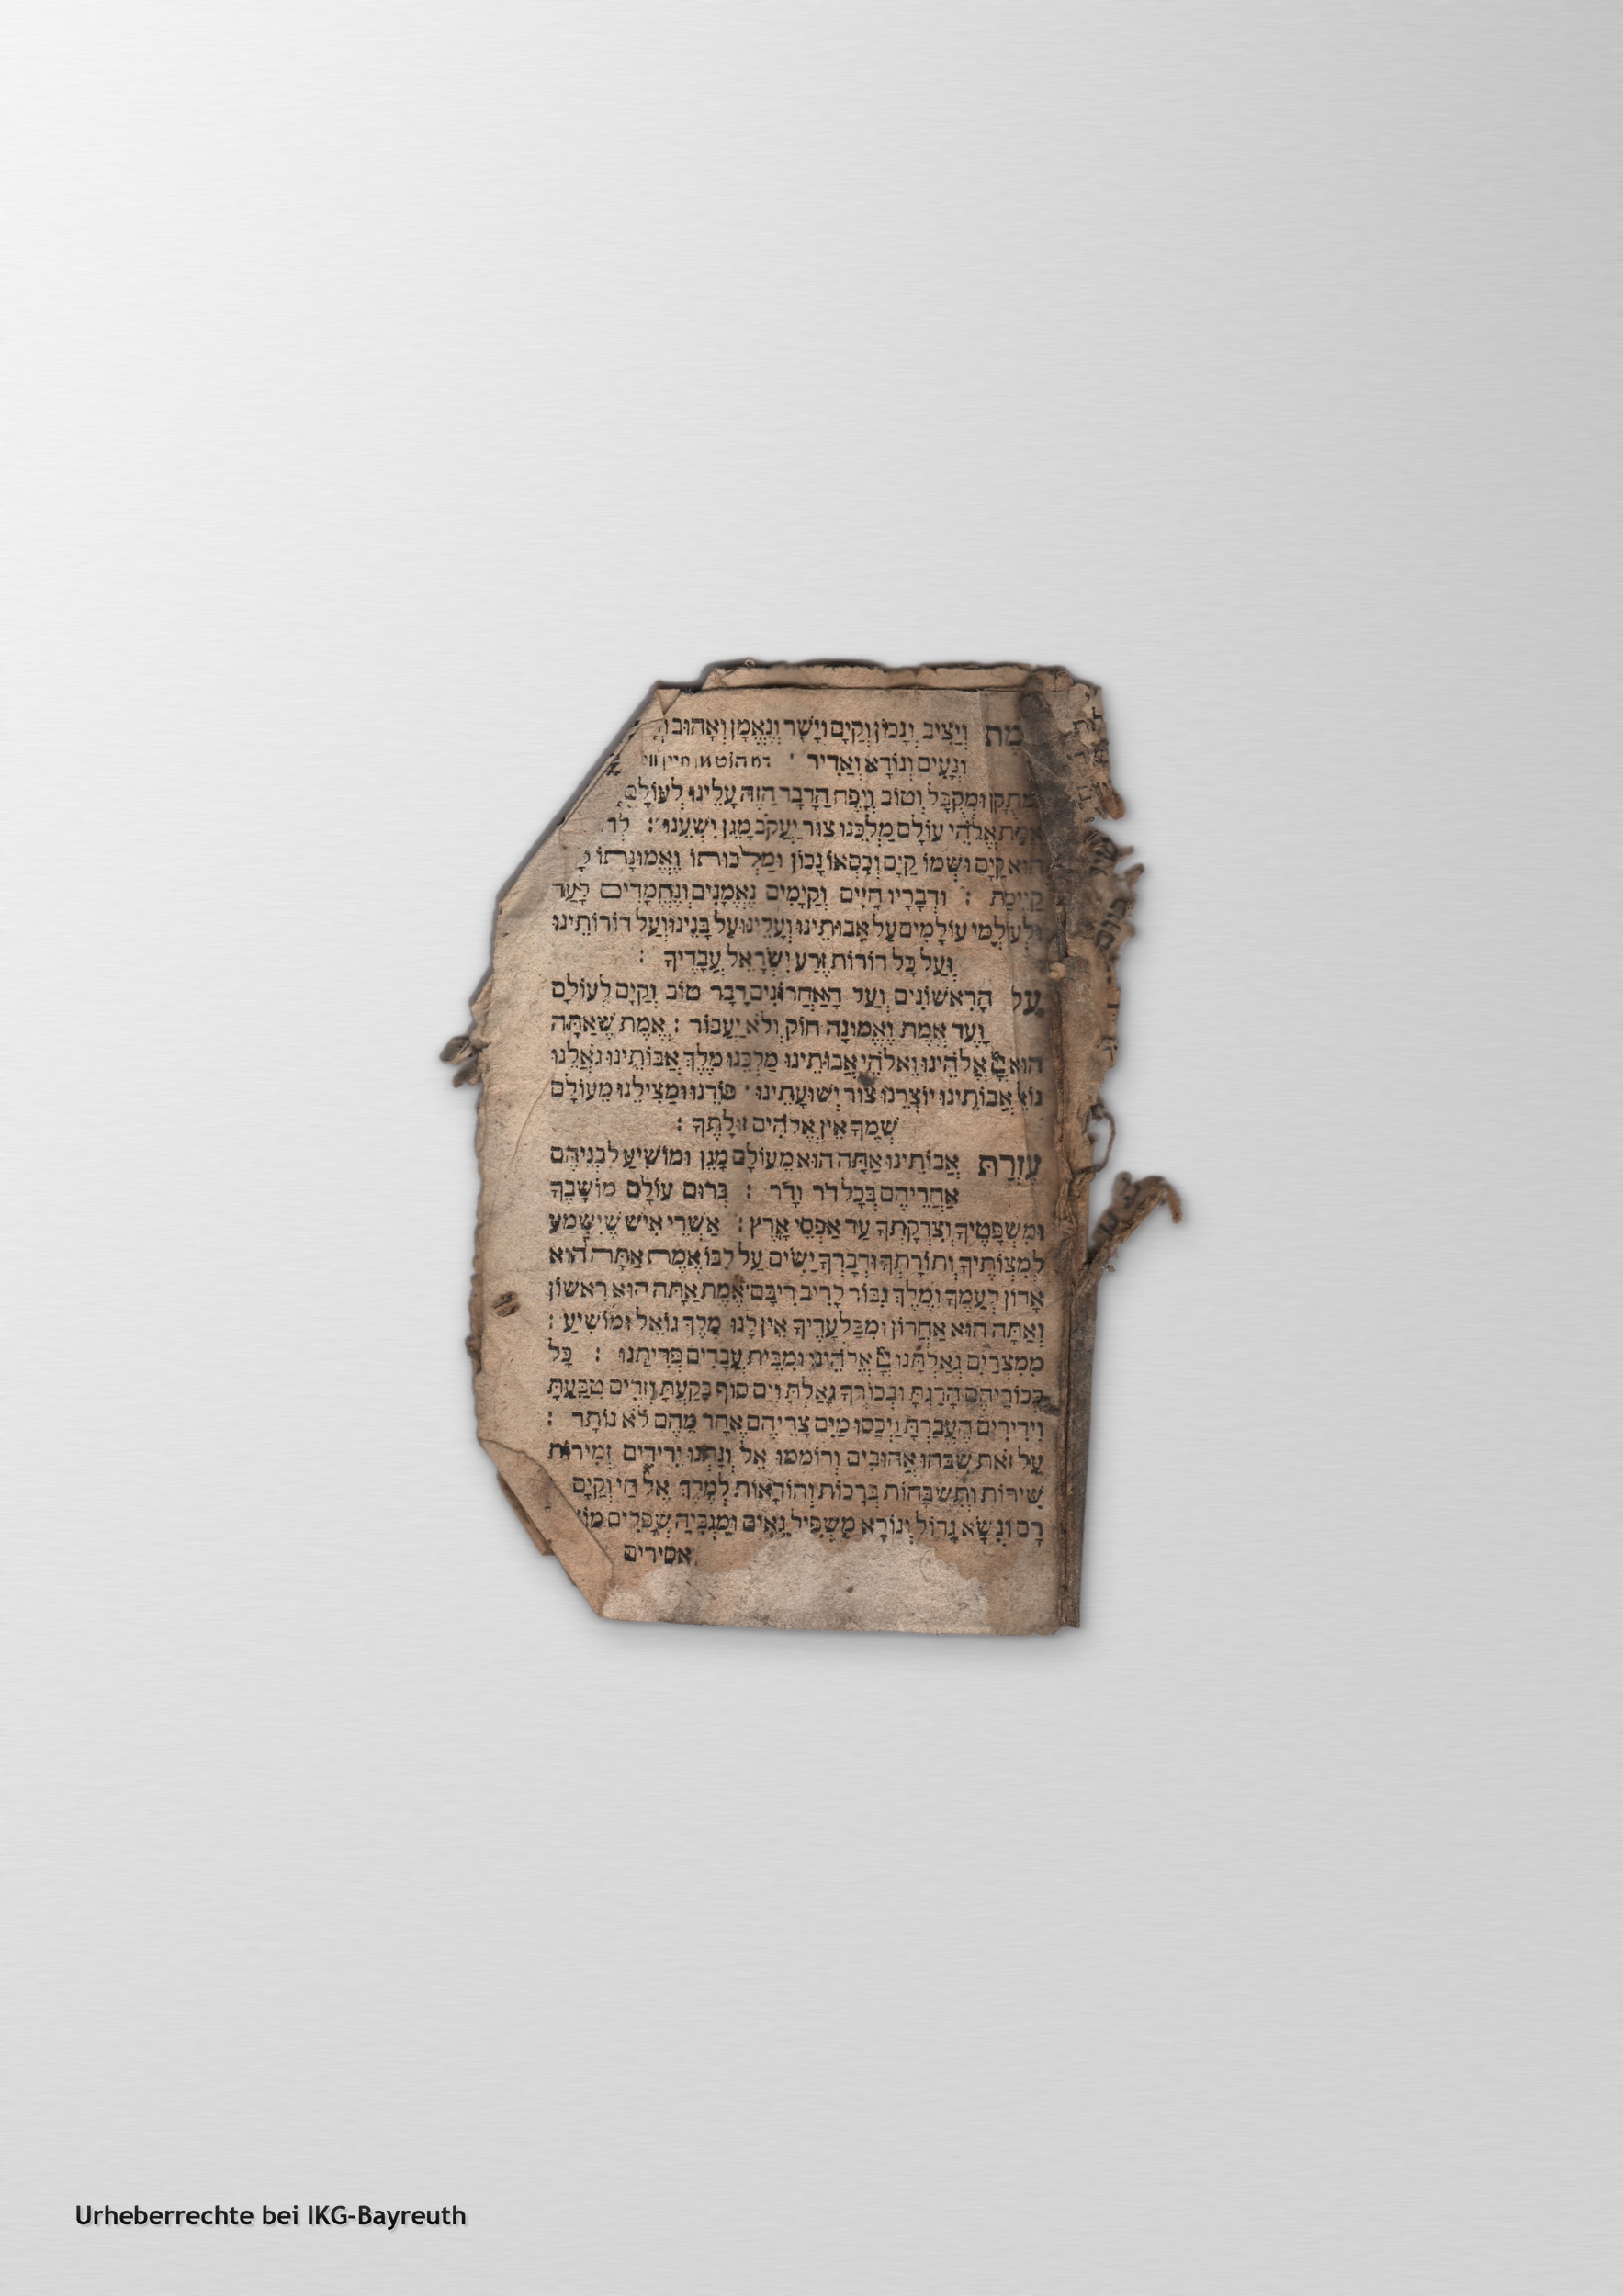 וְיַצִּיב וְנָכוֹן וְקַיָּם וְיָשָׁר וְנֶאֱמָן וְאָהוּב
וְנָעִים וְנוֹרָא וְאַדִּיר
וּמְקֻבָּל וְטוֹב וְיָפֶה הַדָּבָר הַזֶּה עָלֵינוּ לְעוֹלָם
אֱמֶת אֱלֹהֵי עוֹלָם מַלְכֵּנוּ צוּר יַעֲקֹב מָגֵן יִשְׁעֵנוּ :
הוּא קַיָּם וּשְׁמוֹ קַיָּם וְכִסְאוֹ נָכוֹן וּמַלְכוּתוֹ וֶאֱמוּנָתוֹ
קַיֶּימֶת : וּדְבָרָיו חָיִים וְקַיָּמִים נֶאֱמָנִים וְנֶחֱמָדִים לָעַד
וּלְעוֹלְמֵי עוֹלָמִים עַל אֲבוֹתֵינוּ וְעָלֵינוּ עַל בָּנֵינוּ וְעַל דּוֹרוֹתֵינוּ
וְעַל כָּל דּוֹרוֹת זֶרַע יִשְׂרָאֵל עֲבָדֶיךָ :
עַל הָרִאשׁוֹנִים וְעַל הָאַחֲרוֹנִים דָּבָר טוֹב וְקַיָּם לְעוֹלָם
וָעֶד אֱמֶת וֶאֱמוּנָה חוֹק וְלֹא יַעֲבוֹר : אֱמֶת שֶׁאַתָּה
הוּא יְיָ אֱלֹהֵינוּ וֵאלֹהֵי אֲבוֹתֵינוּ מַלְכֵּנוּ מֶלֶךְ אֲבוֹתֵינוּ גֹּאֲלֵנוּ
אֲבוֹתֵינוּ יוֹצְרֵנוּ צוּר יְשׁוּעָתֵינוּ · פּוֹדֵנוּ וּמַצִּילֵנוּ מֵעוֹלָם
שְׁמֶךָ אֵין אֱלֹהִים זוּלָתֶךָ :
עֶזְרַת אֲבוֹתֵינוּ אַתָּה הוּא מֵעוֹלָם מָגֵן וּמוֹשִׁיעַ לִבְנֵיהֶם
אַחֲרֵיהֶם בְּכָל דֹּר וָדֹר : בְּרוּם עוֹלָם מוֹשָׁבֶךָ
וּמִשְׁפָּטֶיךָ וְצִדְקָתְךָ עַד אַפְסֵי אָרֶץ : אַשְׁרֵי אִישׁ שֶׁיִּשְׁמַע
לְמִצְוֹתֶיךָ וְתוֹרָתְךָ וּדְבָרְךָ יָשִׂים עַל לִבּוֹ אֱמֶת אַתָּה הוּא
אָדוֹן לְעַמֶּךָ וּמֶלֶךְ גִּבּוֹר לָרִיב רִיבָם אֱמֶת אַתָּה הוּא רִאשׁוֹן
וְאַתָּה הוּא אַחֲרוֹן וּמִבַּלְעָדֶיךָ אֵין לָנוּ מֶלֶךְ גּוֹאֵל וּמוֹשִׁיעַ :
מִמִּצְרַיִם גְּאַלְתָּנוּ יְיָ אֱלֹהֵינוּ וּמִבֵּית עֲבָדִים פְּדִיתָנוּ : כָּל
בְּכוֹרֵיהֶם הָרַגְתָּ וּבְכוֹרְךָ גָּאַלְתָּ וְיַם סוּף בָּקַעְתָּ וְזֵדִים טִבַּעְתָּ
וִידִידִים הֶעֱבַרְתָּ וַיְכַסּוּ מַיִם צָרֵיהֶם אֶחָד מֵהֶם לֹא נוֹתָר :
עַל זֹאת שִׁבְּחוּ אֲהוּבִים וְרוֹמְמוּ אֵל וְנָתְנוּ יְדִידִים זְמִירוֹת
שִׁירוֹת וְתִשְׁבָּחוֹת בְּרָכוֹת וְהוֹדָאוֹת לְמֶלֶךְ אֵל חַי וְקַיָּם
רָם וְנִשָּׂא גָּדוֹל וְנוֹרָא מַשְׁפִּיל גֵּאִים וּמַגְבִּיהַּ שְׁפָלִים
אסירים
Urheberrechte bei IKG-Bayreuth